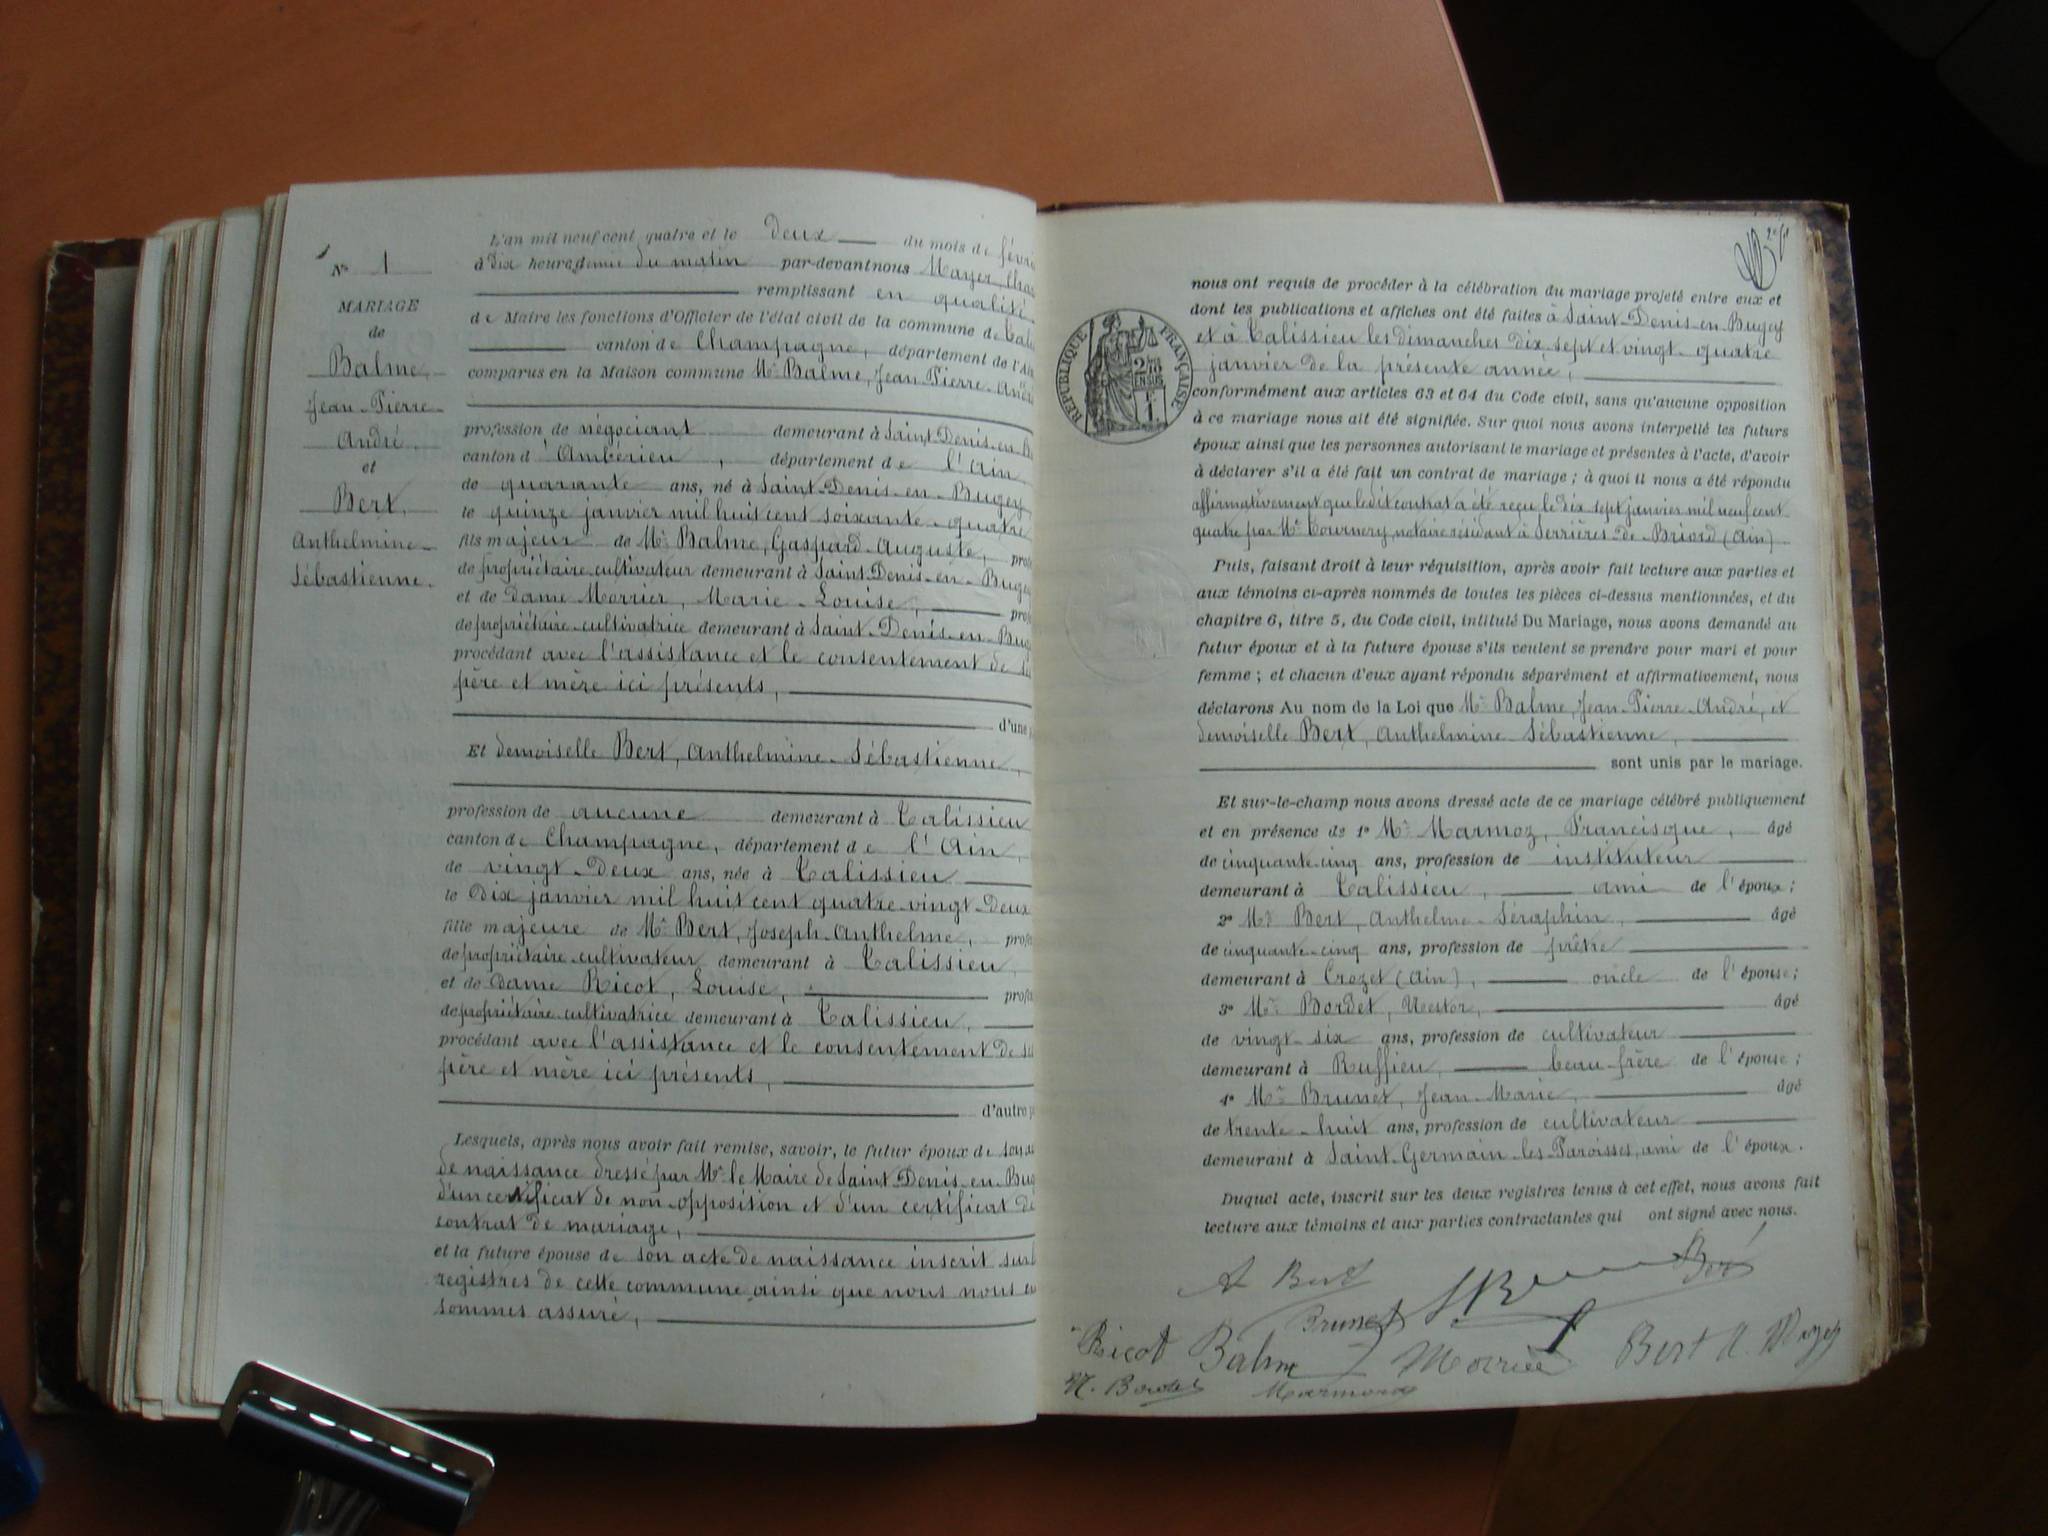 N° 1
MARIAGE
de
Balme,
Jean-Pierre-
André,
et
Bert,
Anthelmine-
Sébastienne.
L'an mil neuf cent quatre et le deux du mois de
à dix heures demie du matin par-devant nous Mayer,
remplissant en qualité
de Maire les fonctions d'Officier de l'état civil de la commune de
canton de Champagne, département de
comparus en la Maison commune Mr Balme, Jean-Pierre-André
profession de négociant demeurant à Saint-Denis-en-B
canton d'Ambérieu, département de l'Ain
de quarante ans, né à Saint-Denis-en-Bugey
le quinze janvier mil huit cent soixante-quatre
fils majeur de Mr Balme, Gaspard-Auguste, prof
de propriétaire-cultivateur demeurant à Saint-Denis-en-Bugey
et de dame Morrier, Marie-Louise, prof
de propriétaire-cultivatrice demeurant à Saint-Denis-en-Bug
procédant avec l'assistance et le consentement de
père et mère ici présents,
d'une
Et demoiselle Bert, Anthelmine-Sébastienne,
profession de aucune demeurant à Talissieu
canton de Champagne, département de l'Ain,
de vingt-deux ans, née à Talissieu
le dix janvier mil huit cent quatre-vingt-deux
fille majeure de Mr Bert, Joseph-Anthelme, profe
de propriétaire-cultivateur demeurant à Talissieu,
et de dame Ricot, Louise, profe
de propriétaire-cultivatrice demeurant à Talissieu,
procédant avec l'assistance et le consentement de
père et mère ici présents,
d'autre p
Lesquels, après nous avoir fait remise, savoir, le futur époux de son
de naissance dressé par Mr le Maire de Saint-Denis-en-Bug
d'un certificat de non-opposition et d'un certificat de
contrat de mariage,
et la future épouse de son acte de naissance inscrit sur
registres de cette commune ainsi que nous nous en
sommes assuré,
nous ont requis de procéder à la célébration du mariage projeté entre eux et
dont les publications et affiches ont été faites à Saint-Denis-en-Bugey
et à Talissieu les dimanches dix-sept et vingt-quatre
janvier de la présente année,
RÉPUBLIQUE FRANÇAISE
2/10 EN SUS
conformément aux articles 63 et 64 du Code civil, sans qu'aucune opposition
à ce mariage nous ait été signifiée. Sur quoi nous avons interpellé les futurs
époux ainsi que les personnes autorisant le mariage et présentes à l'acte, d'avoir
à déclarer s'il a été fait un contrat de mariage ; à quoi il nous a été répondu
affirmativement que le dit contrat a été reçu le dix-sept janvier mil neuf cent
quatre par Mr Tournery, notaire résidant à Serrières-de-Briord (Ain)
Puis, faisant droit à leur réquisition, après avoir fait lecture aux parties et
aux témoins ci-après nommés de toutes les pièces ci-dessus mentionnées, et du
chapitre 6, titre 5, du Code civil, intitulé Du Mariage, nous avons demandé au
futur époux et à la future épouse s'ils veulent se prendre pour mari et pour
femme ; et chacun d'eux ayant répondu séparément et affirmativement, nous
déclarons Au nom de la Loi que Mr Balme, Jean-Pierre-André, et
demoiselle Bert, Anthelmine-Sébastienne,
sont unis par le mariage.
Et sur-le-champ nous avons dressé acte de ce mariage célébré publiquement
et en présence de 1° Mr Marmoz, Francisque, âgé
de cinquante-cinq ans, profession de instituteur
demeurant à Talissieu, ami de l'époux ;
2° Mr Bert, Anthelme-Séraphin, âgé
de cinquante-cinq ans, profession de prêtre
demeurant à Crozet (Ain), oncle de l'épouse ;
3° Mr Bordet, Nestor, âgé
de vingt-six ans, profession de cultivateur
demeurant à Ruffieu, beau-frère de l'épouse ;
4° Mr Brunet, Jean-Marie, âgé
de trente-huit ans, profession de cultivateur
demeurant à Saint-Germain-les-Paroisses, ami de l'époux.
Duquel acte, inscrit sur les deux registres tenus à cet effet, nous avons fait
lecture aux témoins et aux parties contractantes qui ont signé avec nous.
A Bert
Brunet
Ricot Balme Morrier Bert A. Mayer
N. Bordet Marmoz